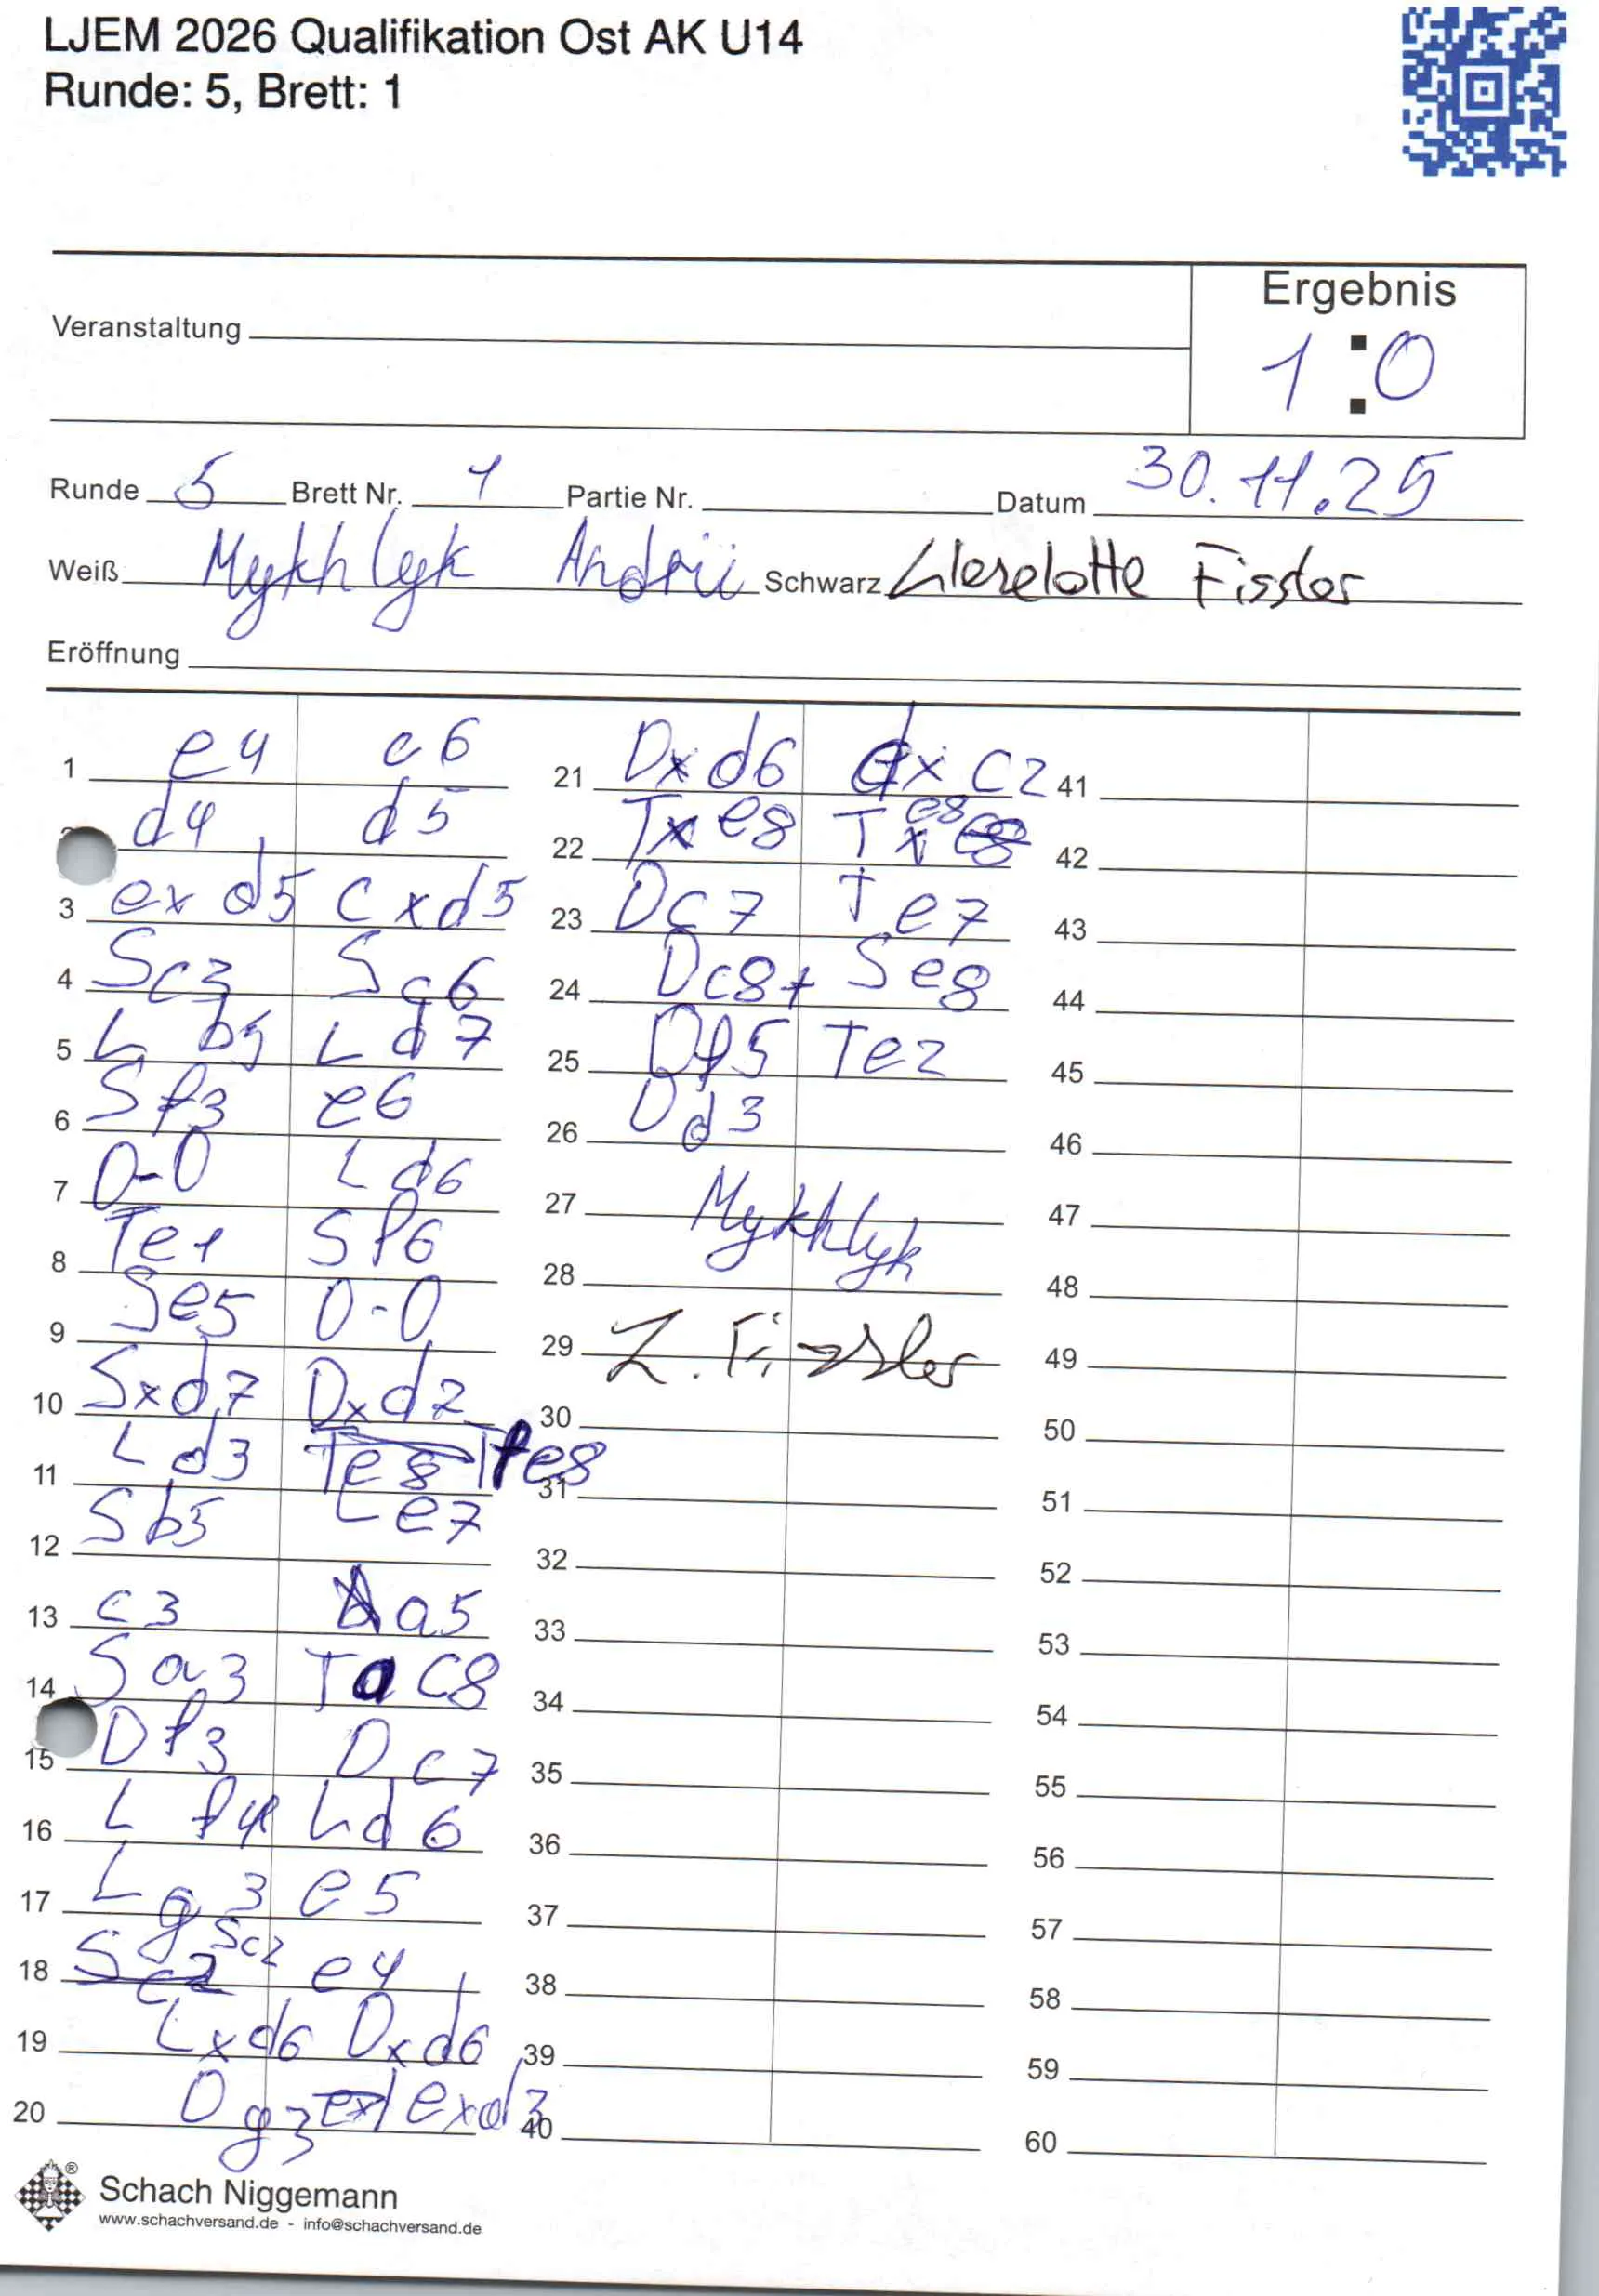 LJEM 2026 Qualifikation Ost AK U14
Runde: 5, Brett: 1
Ergebnis
1:0
Veranstaltung
Runde 5 Brett Nr. 1 Partie Nr. Datum 30.11.25
Weiß Mykhlyk Andrii Schwarz Lieselotte Fissler
Eröffnung
1 e4 c6
d4 d5
3 exd5 cxd5
4 Sc3 Sc6
5 Lb5 Ld7
6 Sf3 e6
7 0-0 Ld6
8 Te1 Sf6
9 Se5 0-0
10 Sxd7 Dxd7
11 Ld3 Tfe8
12 Sb5 Le7
13 c3 a5
14 Sa3 Tac8
15 Df3 Dc7
16 Lf4 Ld6
17 Lg3 e5
18 Sc2 e4
19 Lxd6 Dxd6
20 Dg3 exd3
21 Dxd6 dxc2
22 Txe8 Txe8
23 Dc7 Te7
24 Dc8+ Se8
25 Df5 Te2
26 Dd3
27 Mykhlyk
28
29 L. Fissler
30
31
32
33
34
35
36
37
38
39
40
41
42
43
44
45
46
47
48
49
50
51
52
53
54
55
56
57
58
59
60
Schach Niggemann
www.schachversand.de - info@schachversand.de